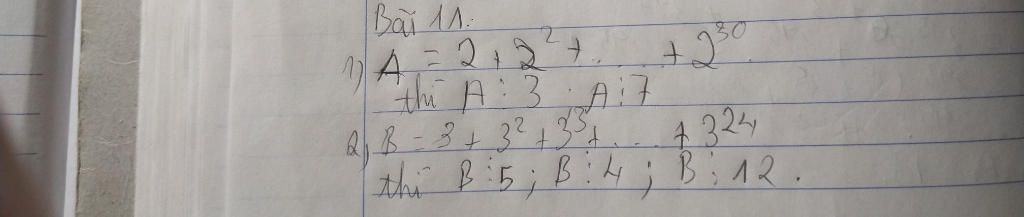 Bài 11:
1) A = 2 + 2² + .... + 2³⁰.
thì A ⋮ 3 . A ⋮ 7
2) B = 3 + 3² + 3³ + .... + 3²⁴
thì B ⋮ 5 ; B ⋮ 4 ; B ⋮ 12 .